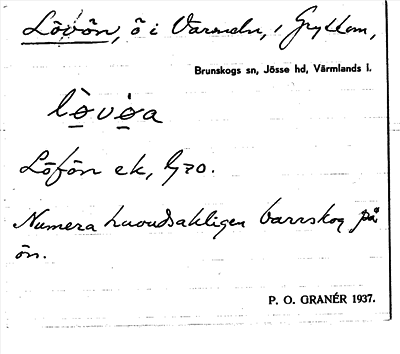 Lövön, ö i Värmeln, i Gryttom,
Brunskogs sn, Jösse hd, Värmlands l.
lò̲vò̲a
Löfön ek, Lj 20.
Numera huvudsakligen barrskog på
ön.
P. O. GRANÉR 1937.